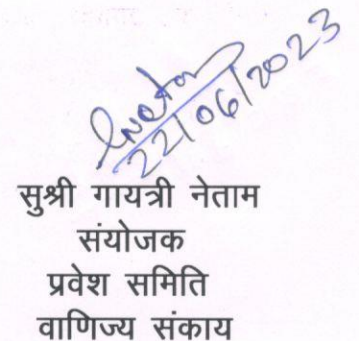 22/06/2023
सुश्री गायत्री नेताम
संयोजक
प्रवेश समिति
वाणिज्य संकाय